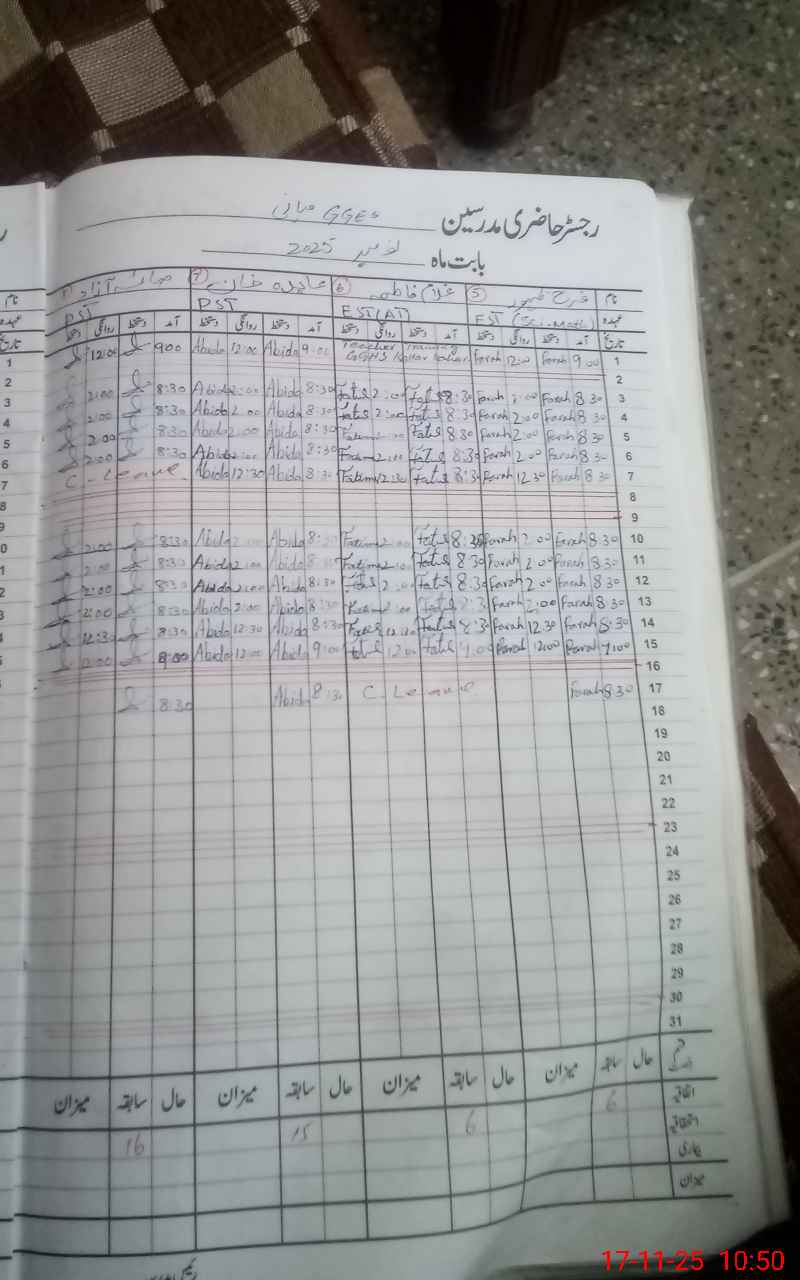 رجسٹر حاضری مدرسین GGES میانی
بابت ماہ نومبر 2025
نام ⑤ فرح ظہور ⑥ غلام فاطمہ ⑦ عابدہ خان صائمہ آزاد
عہدہ EST (Sci-Math) EST (AT) PST PST
تاریخ آمد دستخط روانگی دستخط آمد دستخط روانگی دستخط آمد دستخط روانگی دستخط آمد دستخط روانگی دستخط
1 12:00 9:00 Abida 12:00 Abida 9:00 Teacher Training GGHS Kallar Kahar Farah 12:00 Farah 9:00 1
2 2
3 2:00 8:30 Abida 2:00 Abida 8:30 2:00 8:30 Farah 2:00 Farah 8:30 3
4 2:00 8:30 Abida 2:00 Abida 8:30 2:00 8:30 Farah 2:00 Farah 8:30 4
5 2:00 8:30 Abida 2:00 Abida 8:30 8:30 Farah 2:00 Farah 8:30 5
6 2:00 8:30 Abida 2:00 Abida 8:30 2:00 8:30 Farah 2:00 Farah 8:30 6
7 C-Leave Abida 12:30 Abida 8:30 12:30 8:30 Farah 12:30 Farah 8:30 7
8 8
9 9
2:00 8:30 Abida Abida Fatima 2:00 8:30 Farah 2:00 Farah 8:30 10
2:00 8:30 Abida 2:00 Abida Fatima 2:00 8:30 Farah 2:00 Farah 8:30 11
2:00 8:30 Abida 2:00 Abida 8:30 2:00 8:30 Farah 2:00 Farah 8:30 12
2:00 8:30 Abida 2:00 Abida 8:30 2:00 Farah 2:00 Farah 8:30 13
12:30 8:30 Abida 12:30 Abida 8:30 8:30 Farah 12:30 Farah 8:30 14
12:00 9:00 Abida 12:00 Abida 9:00 12:00 Farah 12:00 Farah 15
16
8:30 Abida 8:30 C-Leave Farah 8:30 17
18
19
20
21
22
23
24
25
26
27
28
29
30
31
حال سابقہ میزان حال سابقہ میزان حال سابقہ میزان حال سابقہ میزان
اتفاقیہ 6 6 15 16
استحقاقیہ
بیماری
میزان
17-11-25 10:50